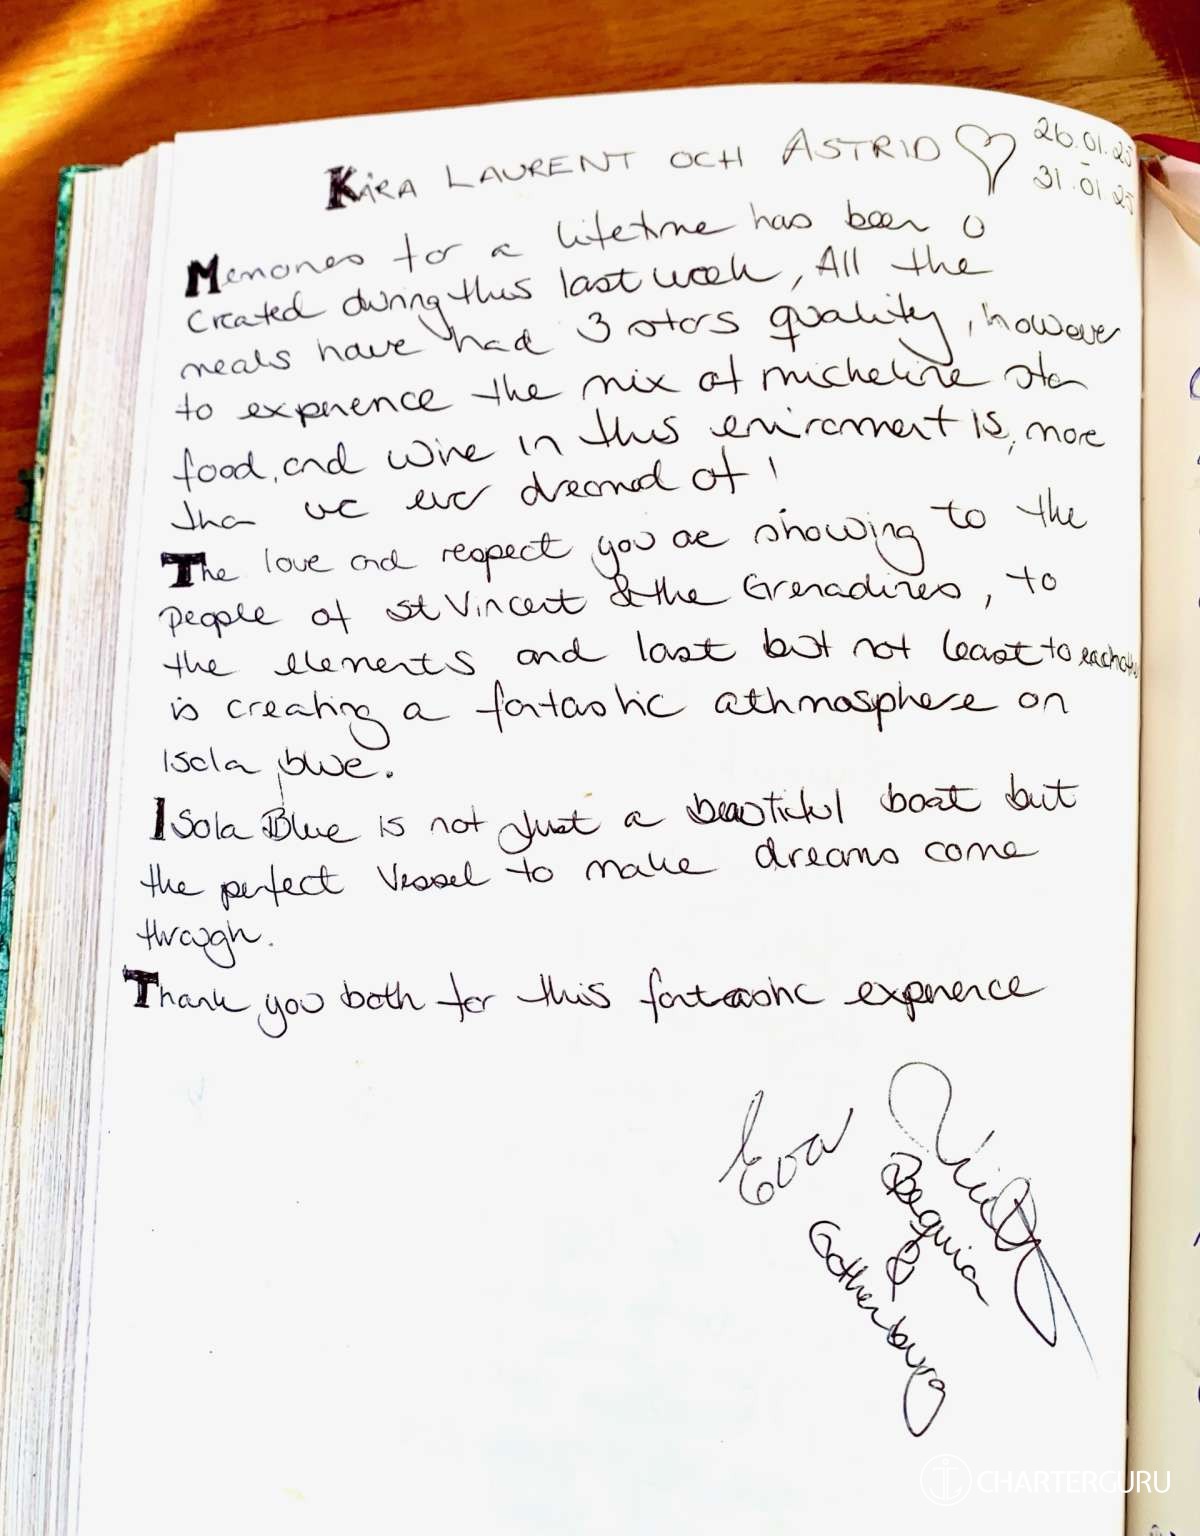 KIRA LAURENT OCH ASTRID
26.01.25
-
31.01.25
Memories for a lifetime has been
created during this last week, All the
meals have had 3 stars quality, however
to experience the mix of micheline star
food, and wine in this enironment is, more
than we ever dreamed of!
The love and respect you are showing to the
people of St Vincent & the Grenadines, to
the elements and last but not least to eachother
is creating a fantastic athmosphere on
Isola blue.
Isola Blue is not just a beautiful boat but
the perfect vessel to make dreams come
through.
Thank you both for this fantastic experience
Eva
Bequia
&
Gothenburg
CHARTERGURU